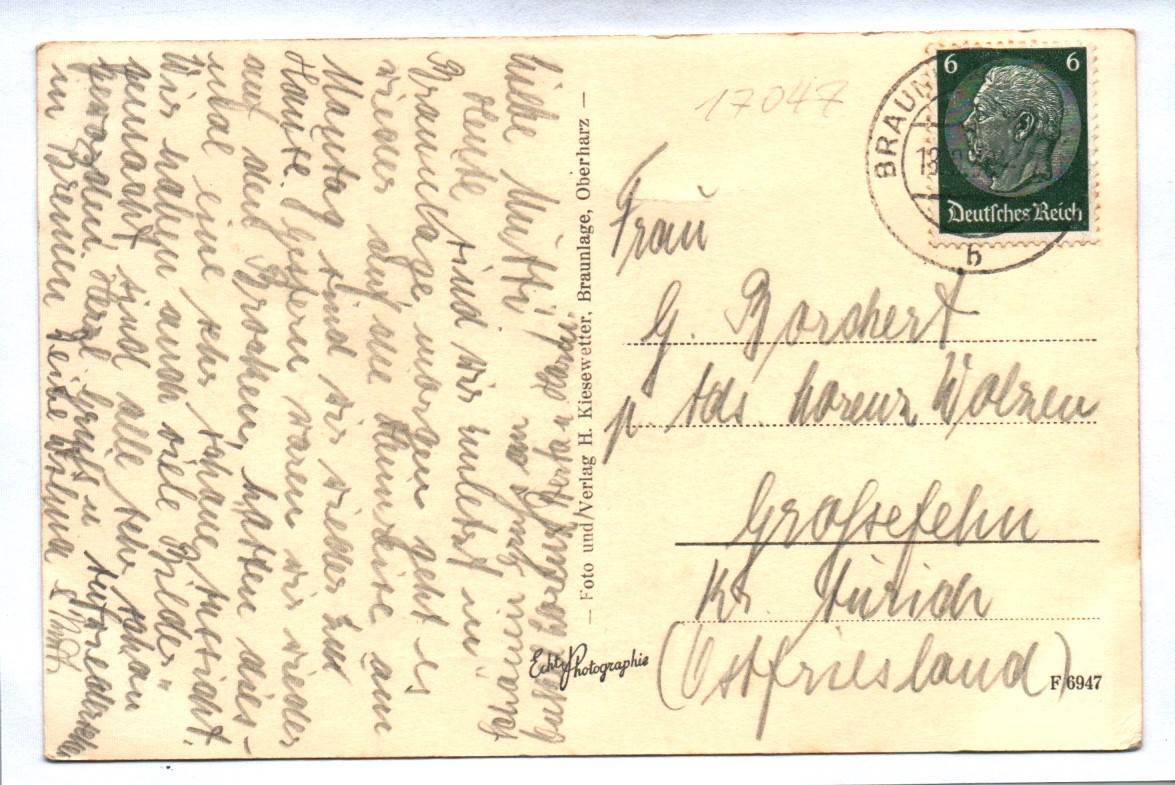 Liebe Mutti,
Heute sind wir zuletzt in
Braunlage morgen geht es
wieder auf die Heimreise am
Montag sind wir wieder zu
Hause. Gestern waren wir wieder
auf dem Brocken, hatten dies-
mal eine sehr schöne Aussicht.
Wir haben auch viele Bilder
gemacht sind alle sehr schön
geworden. Herzl. Grüße u.
in Bremen
17047
BRAUN
b
6 6
Deutsches Reich
Frau
G. Borchert
p. Ads. Lorenz Wolzen
Großefehn
Kr. Aurich
(Ostfriesland)
— Foto und Verlag H. Kiesewetter, Braunlage, Oberharz —
Echte Photographie
F 6947